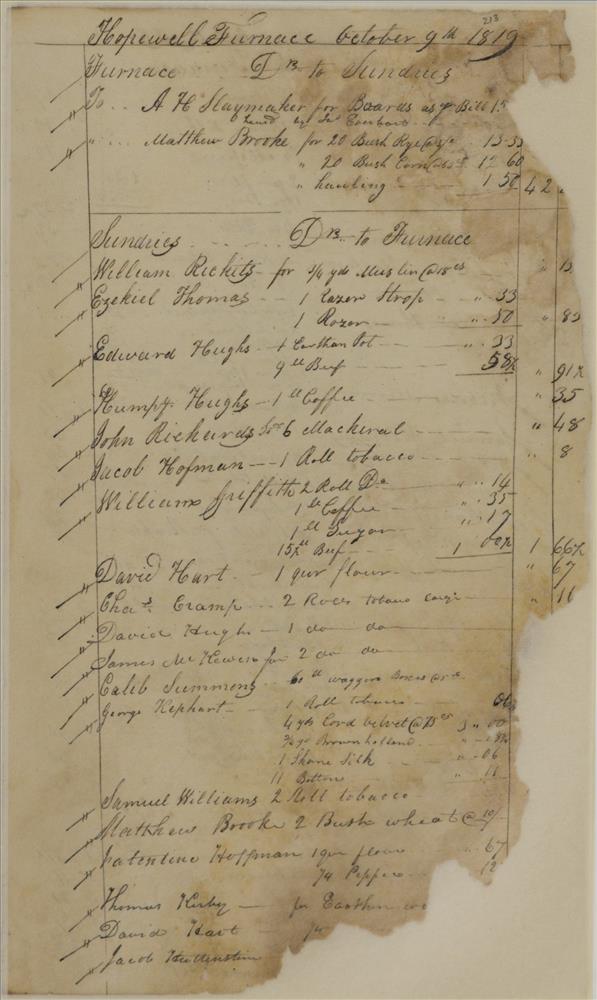 213
Hopewell Furnace October 9th 1819
Furnace Dr. to Sundries
To .. A H Slaymaker for Boards as pr Bill 15
Matthew Brooke for 20 Bush Rye @ 13-33
" 20 Bush Corn @ 12 60
" hauling 1 50 42
Sundries Dr. to Furnace
William Rickets for 3/4 yds Muslin @ 18 cts " 13
Ezekiel Thomas 1 Razor Strop " 33
1 Rozor " 50 " 83
Edward Hughs 1 Earthan Pot " 33
9 lb Beef 58½ " 91½
Humpy. Hughs 1 lb Coffee " 35
John Richards Sr 6 Mackeral " 48
Jacob Hofman 1 Roll tobacco " 8
William Griffith 2 Roll Do " 14
1 lb Coffee " 35
1 lb Sugar " 17
15½ lb Beef 1 00½ 1 66½
David Hart 1 qur flour " 67
Chas. Cramp 2 Rolls tobaco large " 11
David Hughs 1 do do
James McKewen for 2 do do
Caleb Summons 60 lb waggon Boxes @
George Kephart 1 Roll tobacco 06
4 yds Cord velvet @ 75 cts 3 " 00
Brown holland
1 Skane Silk " 06
11 Bottons " 11
Samuel Williams 2 Roll tobacco
Matthew Brooke 2 Bush wheat @ 10/
Valentine Hoffman 1 qur flour " 67
¼ Pepper 12
Thomas Kirby for Earthen
David Hart
Jacob